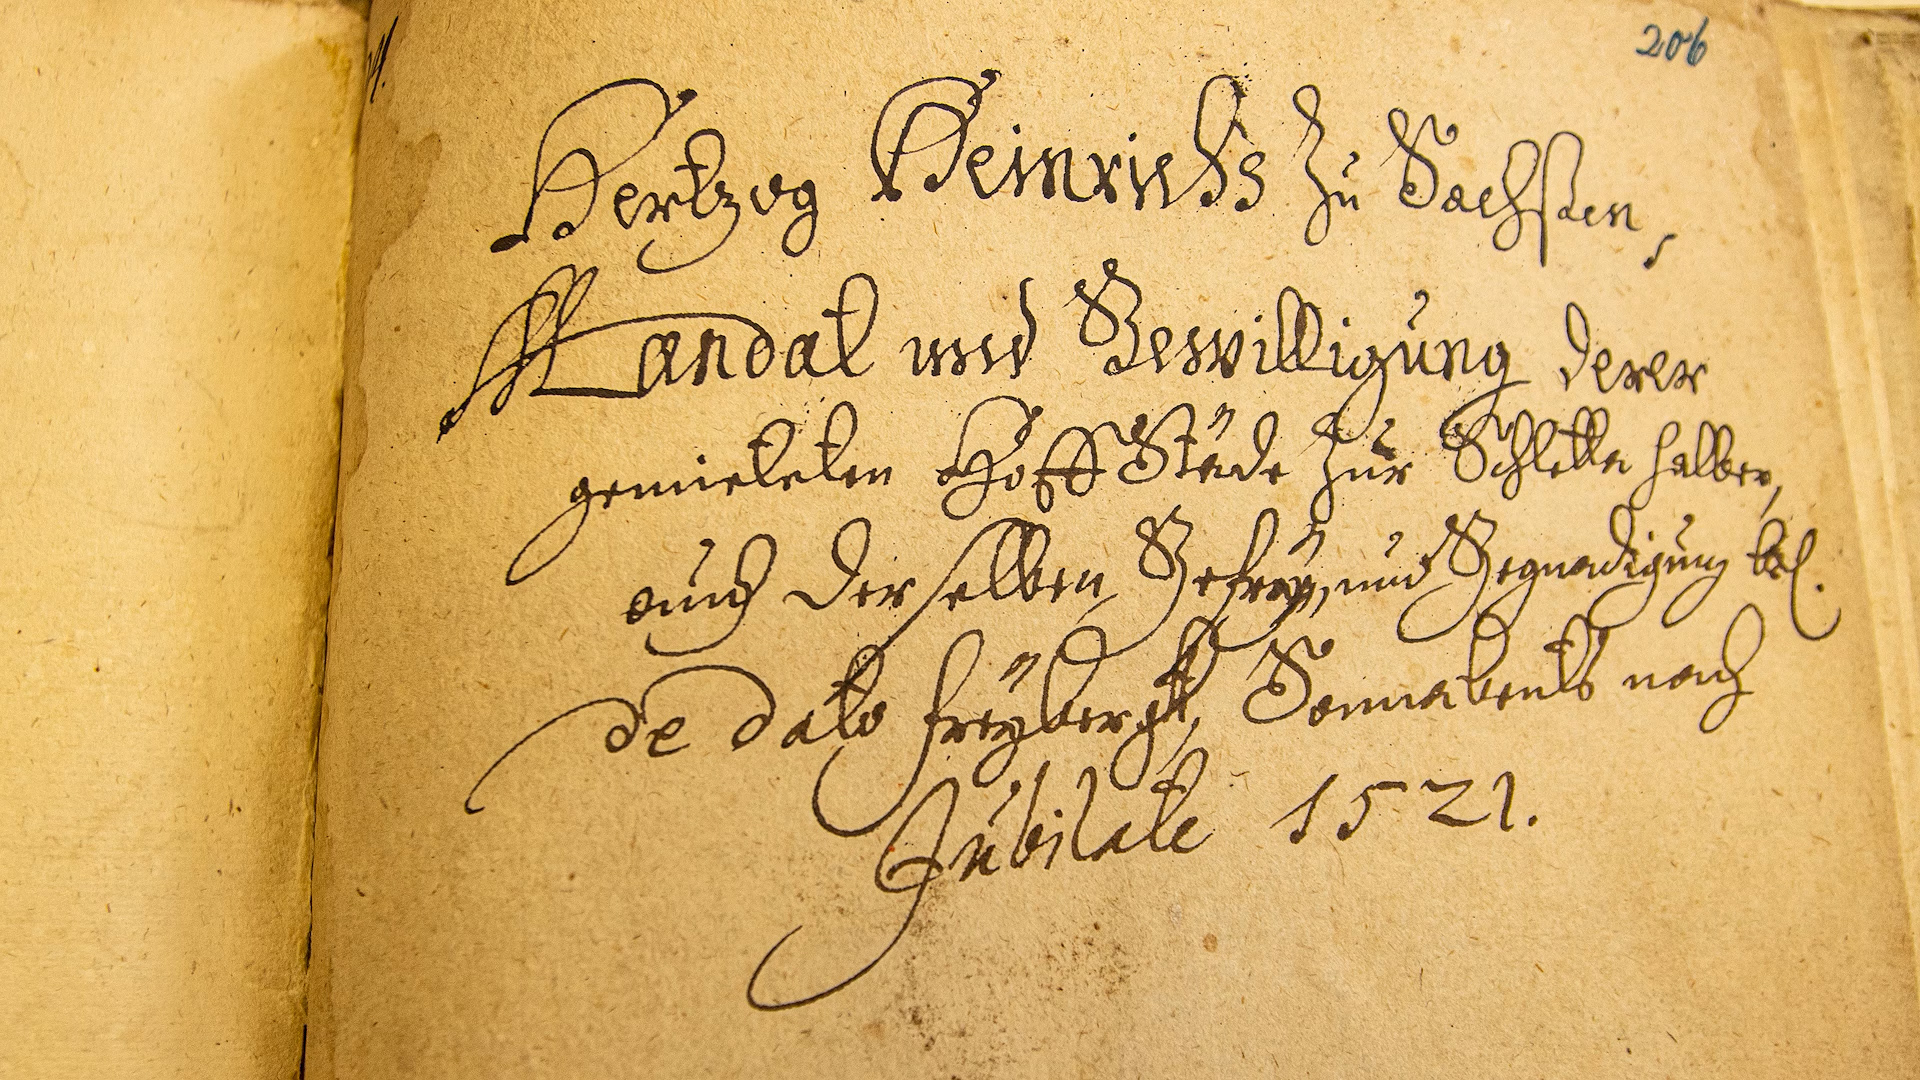 206
Hertzog Heinrichs zu Sachßen,
Mandat und Bewilligung derer
gemieteten Hoff Städe zur Schletta halber,
auch derselben Befreÿ, und Begnadigung bel.
de dato freÿbergk, Sonnabents nach
Jubilate 1521.